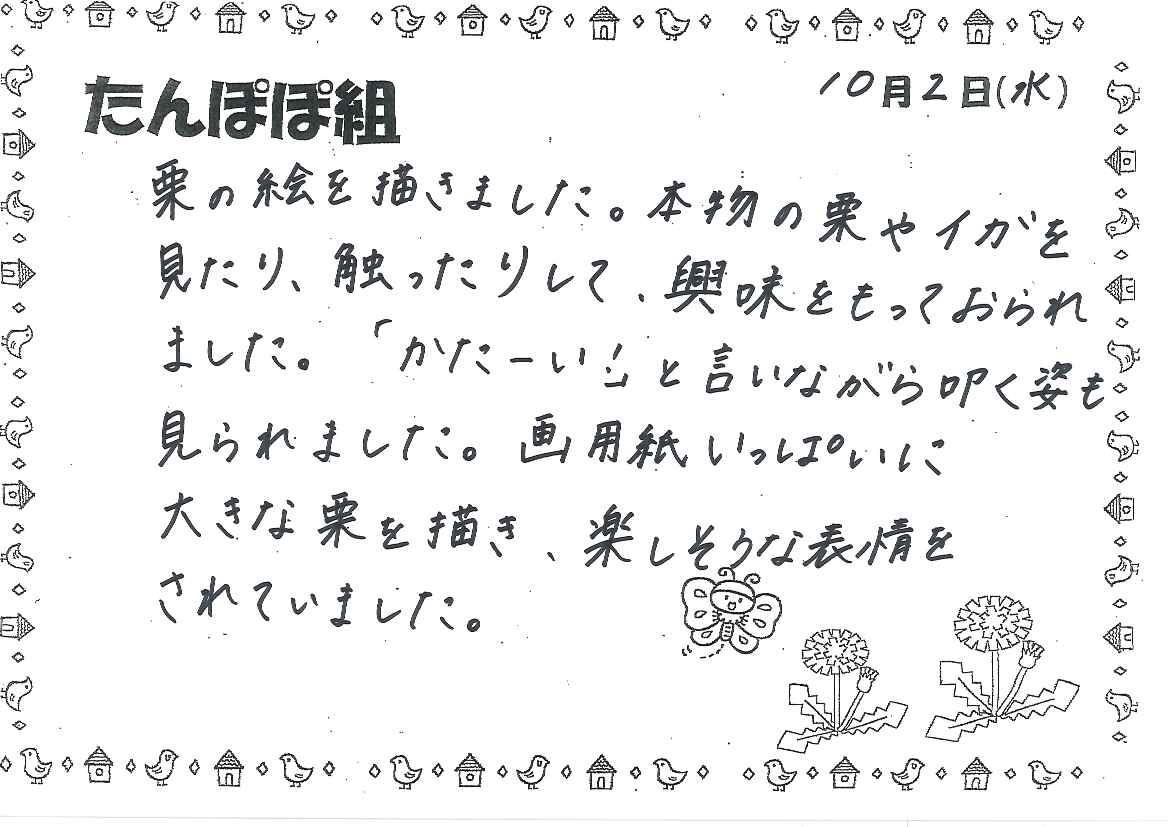 たんぽぽ組
10月2日(水)
栗の絵を描きました。本物の栗やイガを
見たり、触ったりして、興味をもっておられ
ました。「かたーい!」と言いながら叩く姿も
見られました。画用紙いっぱいに
大きな栗を描き、楽しそうな表情を
されていました。